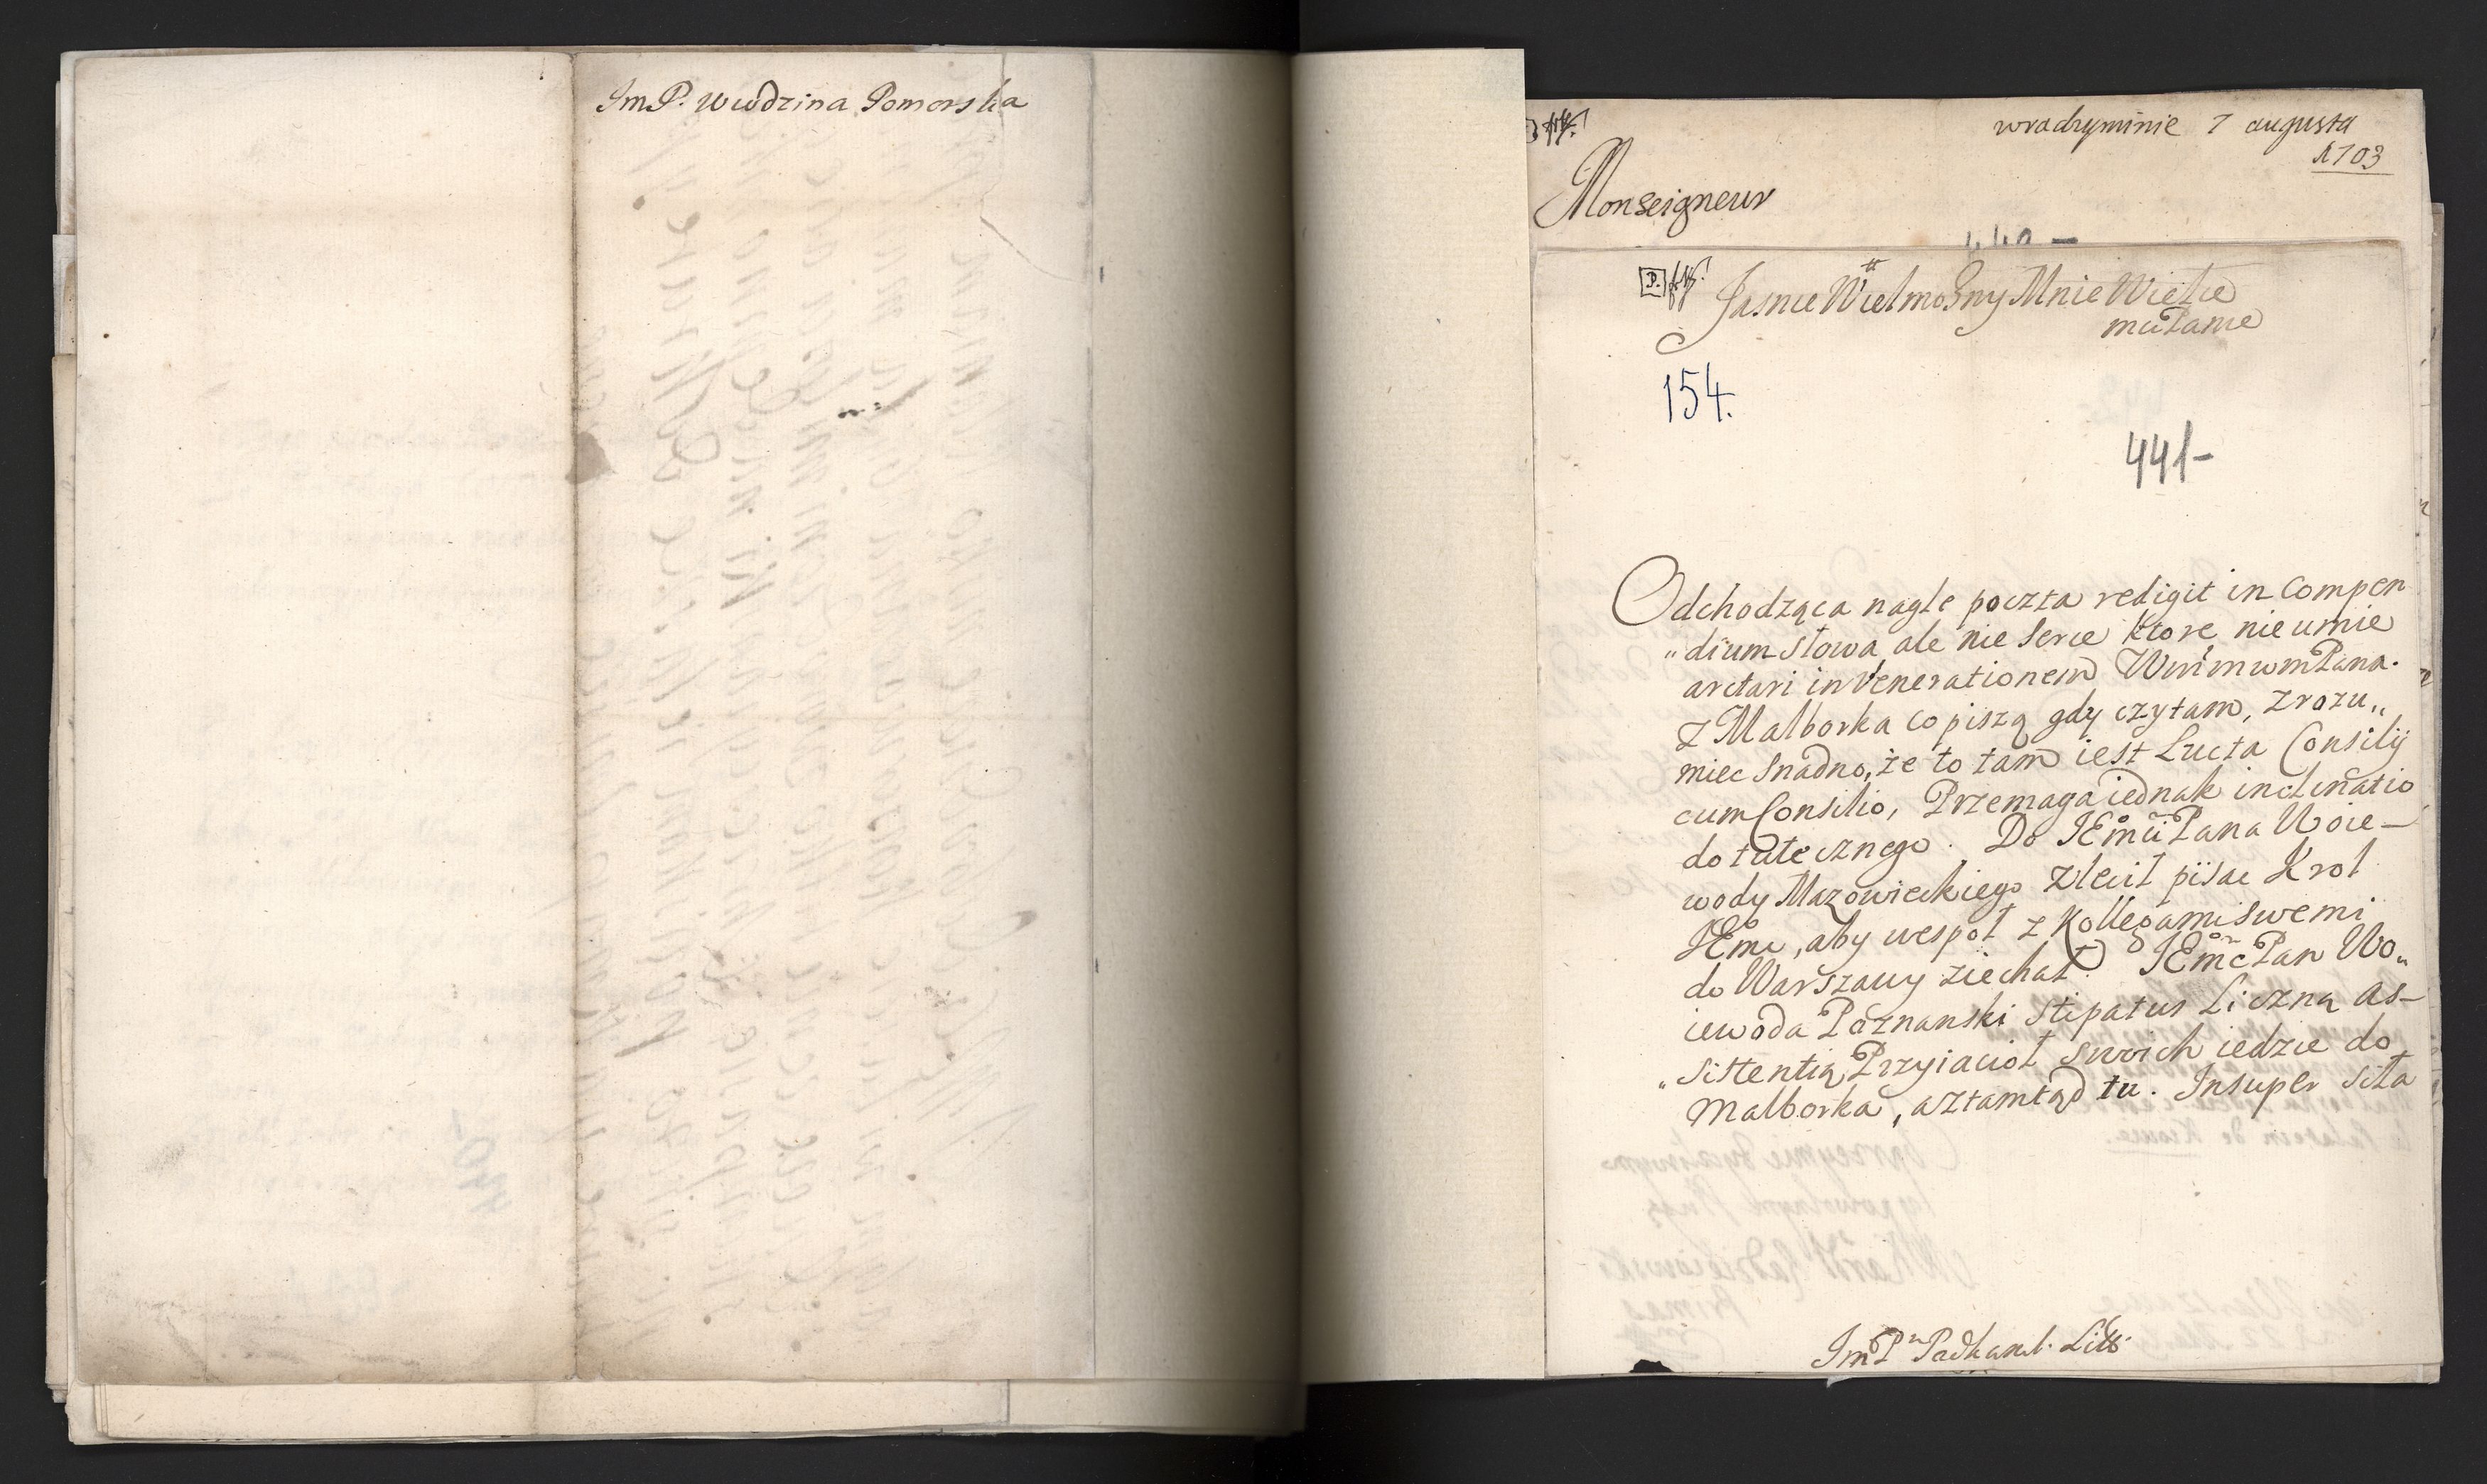 ImP. wwdzina Pomorska
wradzyminie 7 augusta
1703
Monseigneur
440 –
P.
Jasnie Wielmożny Mnie Wielce
mċi Panie
154.
441–
Odchodząca nagle poczta redigit in Compen
„dium słowa ale nie serce ktore nie umie
arctari in Venerationem WmmwmPana.
Z Malborka co piszą gdy czytam, zrozu„
miec snadno, że to tam iest Lucta Consilij
cum Consilio, Przemaga iednak inclinatio
do tutecznego. Do JEmċi Pana Woie–
wody Mazowieckiego zlecił pisac Krol
JEmċ, aby wespoł z Kollegami swemi
do Warszawy ziechał. JEmċ Pan Wo„
iewoda Poznanski stipatus Liczną As–
„sistentią Przyiacioł swoich iedzie do
Malborka, a ztamtąd tu. Insuper siła
ImPn Podkancl. Litt.